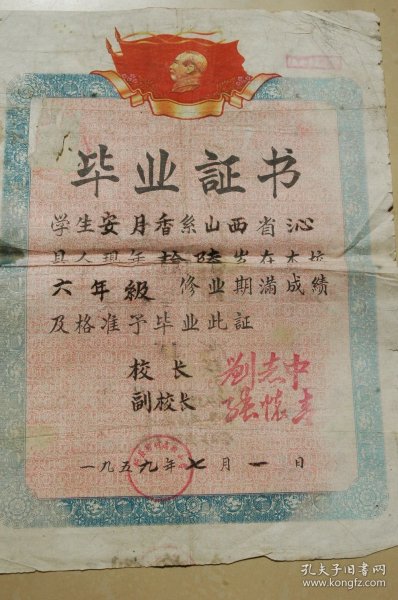 毕业証书
学生安月香系山西省沁
县人现年拾陆岁在本校
六年級 修业期滿成绩
及格准予毕业此証
校长 劉志中
副校长 張怀
一九五九年七月一日
孔夫子旧书网
www.kongfz.com